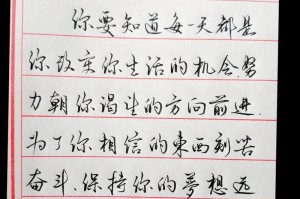 你要知道每一天都是
你改变你生活的机会努
力朝你渴望的方向前进.
为了你相信的東西刻苦
奋斗.保持你的夢想远